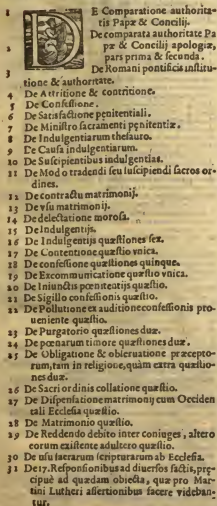 DE Comparatione authorita-
tis Papæ & Concilij.
2 De comparata authoritate Pa
pæ & Concilij apologiæ,
pars prima & secunda.
3 De Romani pontificis institu-
tione & authoritate.
4 De Attritione & contritione.
5 De Confessione.
6 De Satisfactione penitentiali.
7 De Ministro sacramenti penitentiæ.
8 De Indulgentiarum thesauro.
9 De Causa indulgentiarum.
10 De Suscipientibus indulgentias.
11 De Modo tradendi seu suscipiendi sacros or-
dines.
12 De contractu matrimonij.
13 De vsu matrimonij.
14 De delectatione morosa.
15 De Indulgentijs.
16 De Indulgentijs quæstiones sex.
17 De Contentione quæstio vnica.
18 De confessione quæstiones quinque.
19 De Excommunicatione quæstio vnica.
20 De Iniunctis pœnitentijs quæstio.
21 De Sigillo confessionis quæstio.
22 De Pollutione ex auditione confessionis pro-
ueniente quæstio.
23 De Purgatorio quæstiones duæ.
24 De pœnarum timore quæstiones duæ.
25 De Obligatione & obseruatione præcepto-
rum, tam in religione, quàm extra quæstio-
nes duæ.
26 De Sacri ordinis collatione quæstio.
27 De Dispensatione matrimonij cum Occiden
tali Ecclesia quæstio.
28 De Matrimonio quæstio.
29 De Reddendo debito inter coniuges, altero
eorum existente adultero quæstio.
30 De vsu sacrarum scripturarum ab Ecclesia.
31 De 17. Responsionibus ad diuersos factis, præ
cipuè ad quædam obiecta, quæ pro Mar-
tini Lutheri assertionibus facere videban-
tur.